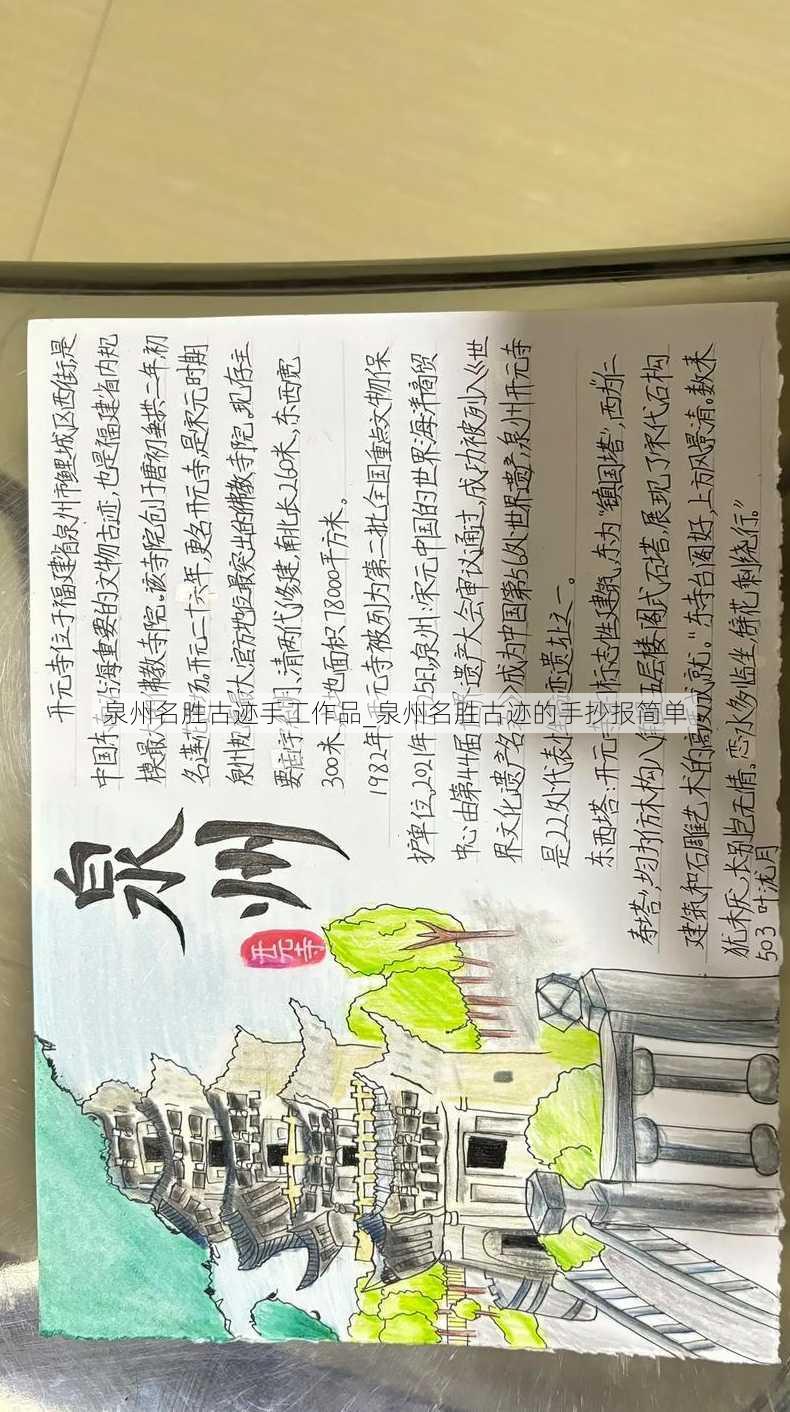 泉州
开元寺
开元寺位于福建省泉州市鲤城区西街,是
中国东 沿海重要的文物古迹,也是福建省内规
模最 佛教寺院。该寺院创于唐初垂拱二年,初
名莲 开元二十六年,更名开元寺,是宋元时期
泉州规 最大,官方地位最突出的佛教寺院。现存主
要 明、清两代修建,南北长260米,东西宽
300米 地面积78000平方米。
1982年 元寺被列为第二批全国重点文物保
护单位,2021年 5日,泉州:宋元中国的世界海洋商贸
中心由第44届 遗产大会审议通过,成功被列入《世
界文化遗产名 成为中国第56处世界遗产,泉州开元寺
是22处代表 遗址之一。
东西塔:开元 标志性建筑,东为“镇国塔”,西为“仁
寿塔”,均为仿木构八 五层楼阁式石塔,展现了宋代石构
建筑和石雕艺术的高度成就。“东寺台阁好,上方风景清。数来
犹未厌,长别岂无情。恋水多临坐,绕花 剩绕行。”
503 叶 月
泉州名胜古迹手工作品_泉州名胜古迹的手抄报简单